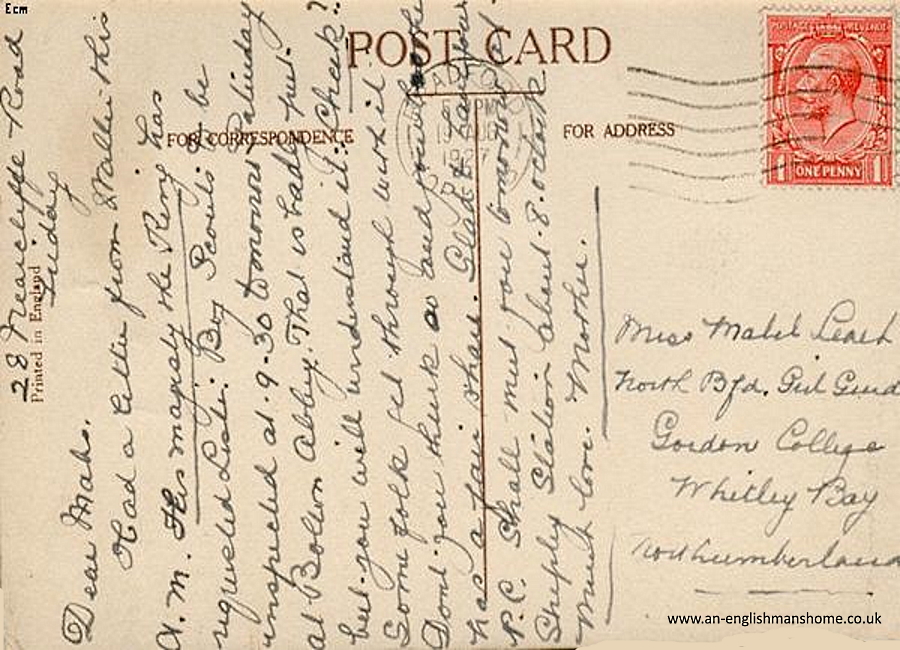 Ecm
POST CARD
FOR CORRESPONDENCE
FOR ADDRESS
POSTAGE REVENUE
1 ONE PENNY 1
Printed in England
28 Nearcliffe Road
Friday
Dear Mabs.
Had a letter from Walli this
A.M. His majesty the King has
requested Lister Boy Scouts to be
inspected at 9-30 tomorrow, Saturday
at Bolton Abbey. That is badly put.
but you will understand it. Cheek?
Some folk get through with it
Dont you think so and
has a fair share. Glad to have your
P.C. Shall meet you tomorrow
Shiply Station about 8.oclock
Much love. Mother.
Miss Mabel Leach
North Bfd. Girl Guide
Gordon College
Whitley Bay
Northumberland
www.an-englishmanshome.co.uk